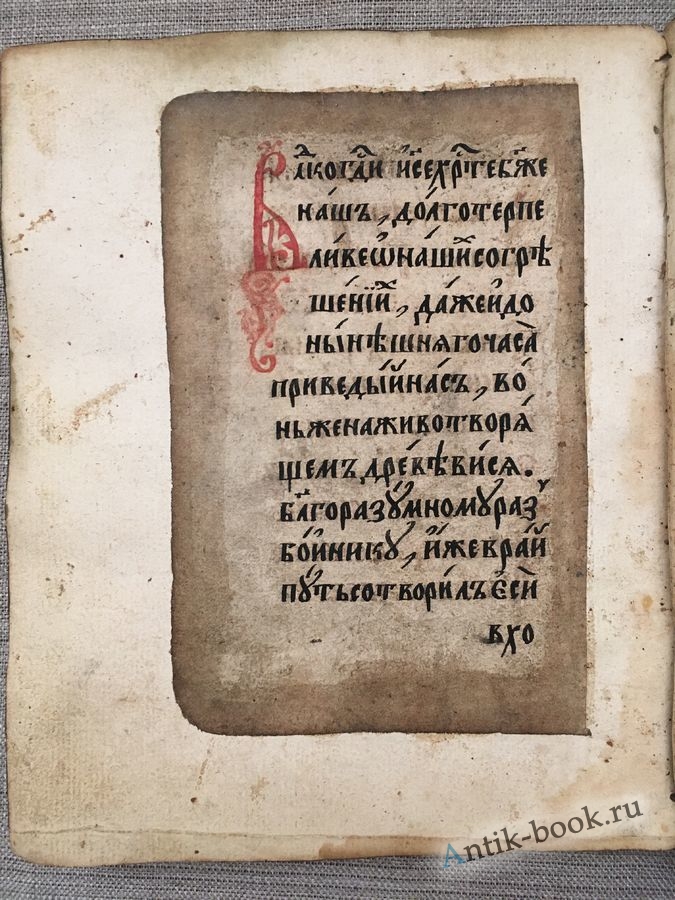 Влⷣкогⷭ҇ди І҆с҃ехрⷭ҇тебж҃е
на́шъ, до́лготерпе
ли́веѡ҆на́шиⷯсогрѣ
ше́нїиⷯ, да́жеи҆до
ны́нѣшнягочаса̀
приведы́йна́съ, во́
ньженаживотворѧ́
щемъдре́вѣви́ся.
бл҃горазꙋ́момꙋраз
бо́йникꙋ, и҆́жеврай
пꙋ́тьсотвори́лъє҆сѝ
вхо
Antik-book.ru